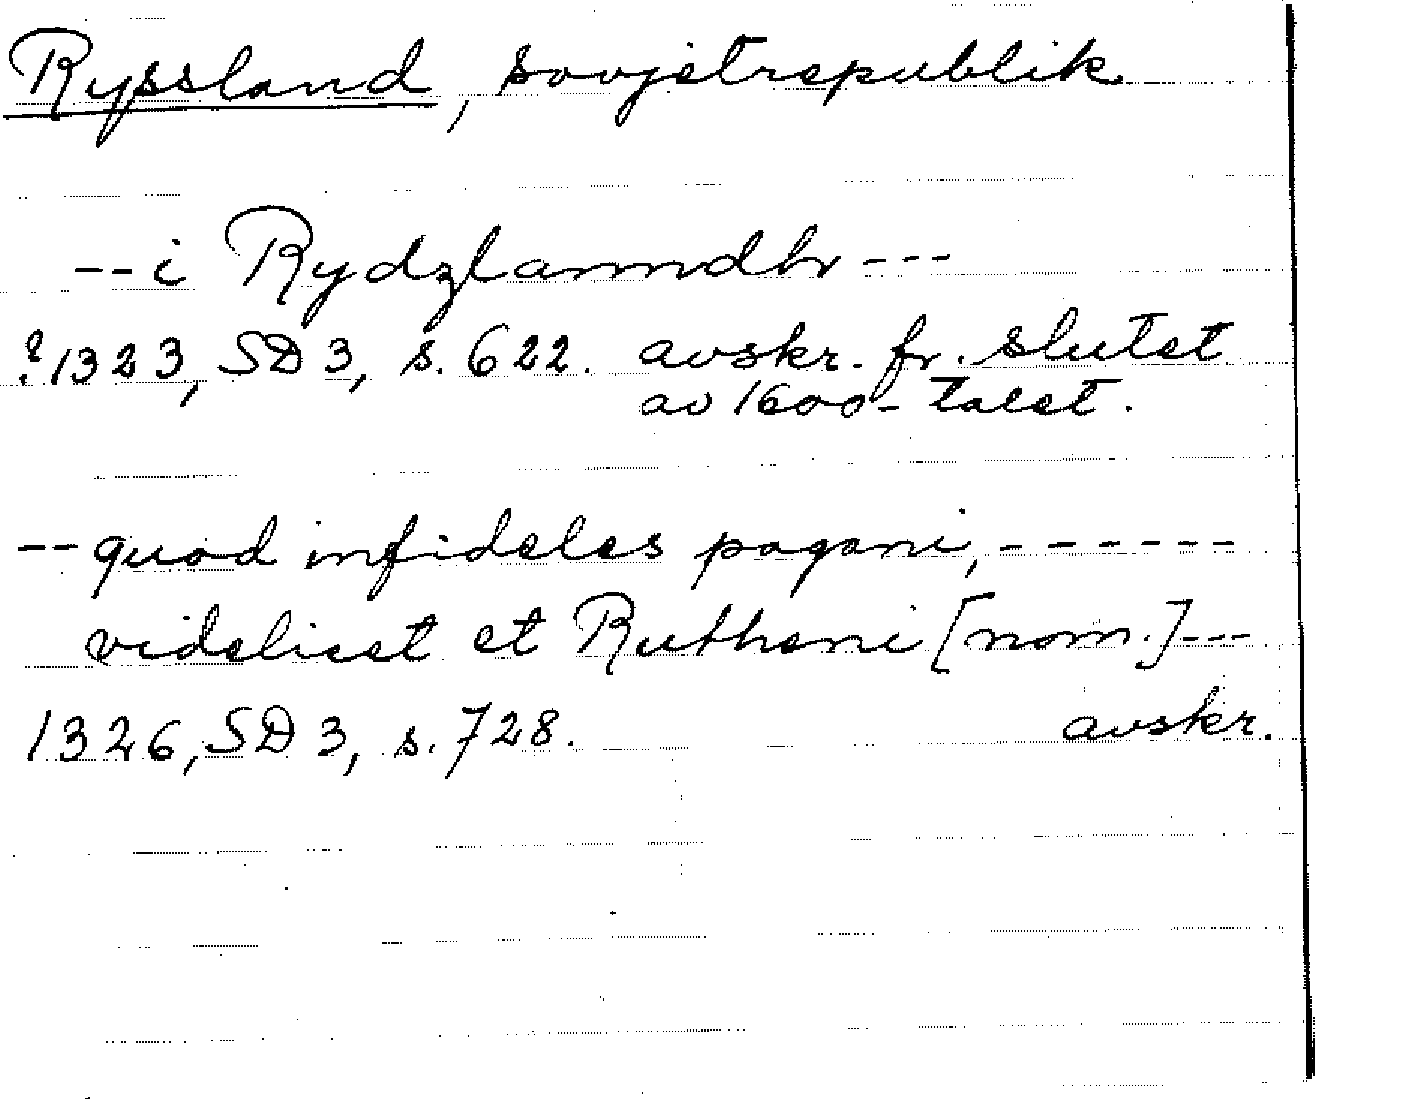 Ryssland, sovjetrepublik
--i Rydzlanndhr---
?1323, SD 3, s. 622. avskr. fr. slutet
av 1600-talet.
--quod infideles pagani, ------
videlicet et Rutheni [nom.]---
1326, SD 3, s. 728. avskr.